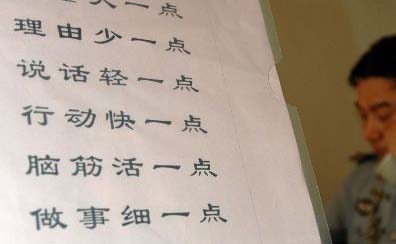 一点
理由少一点
说话轻一点
行动快一点
脑筋活一点
做事细一点